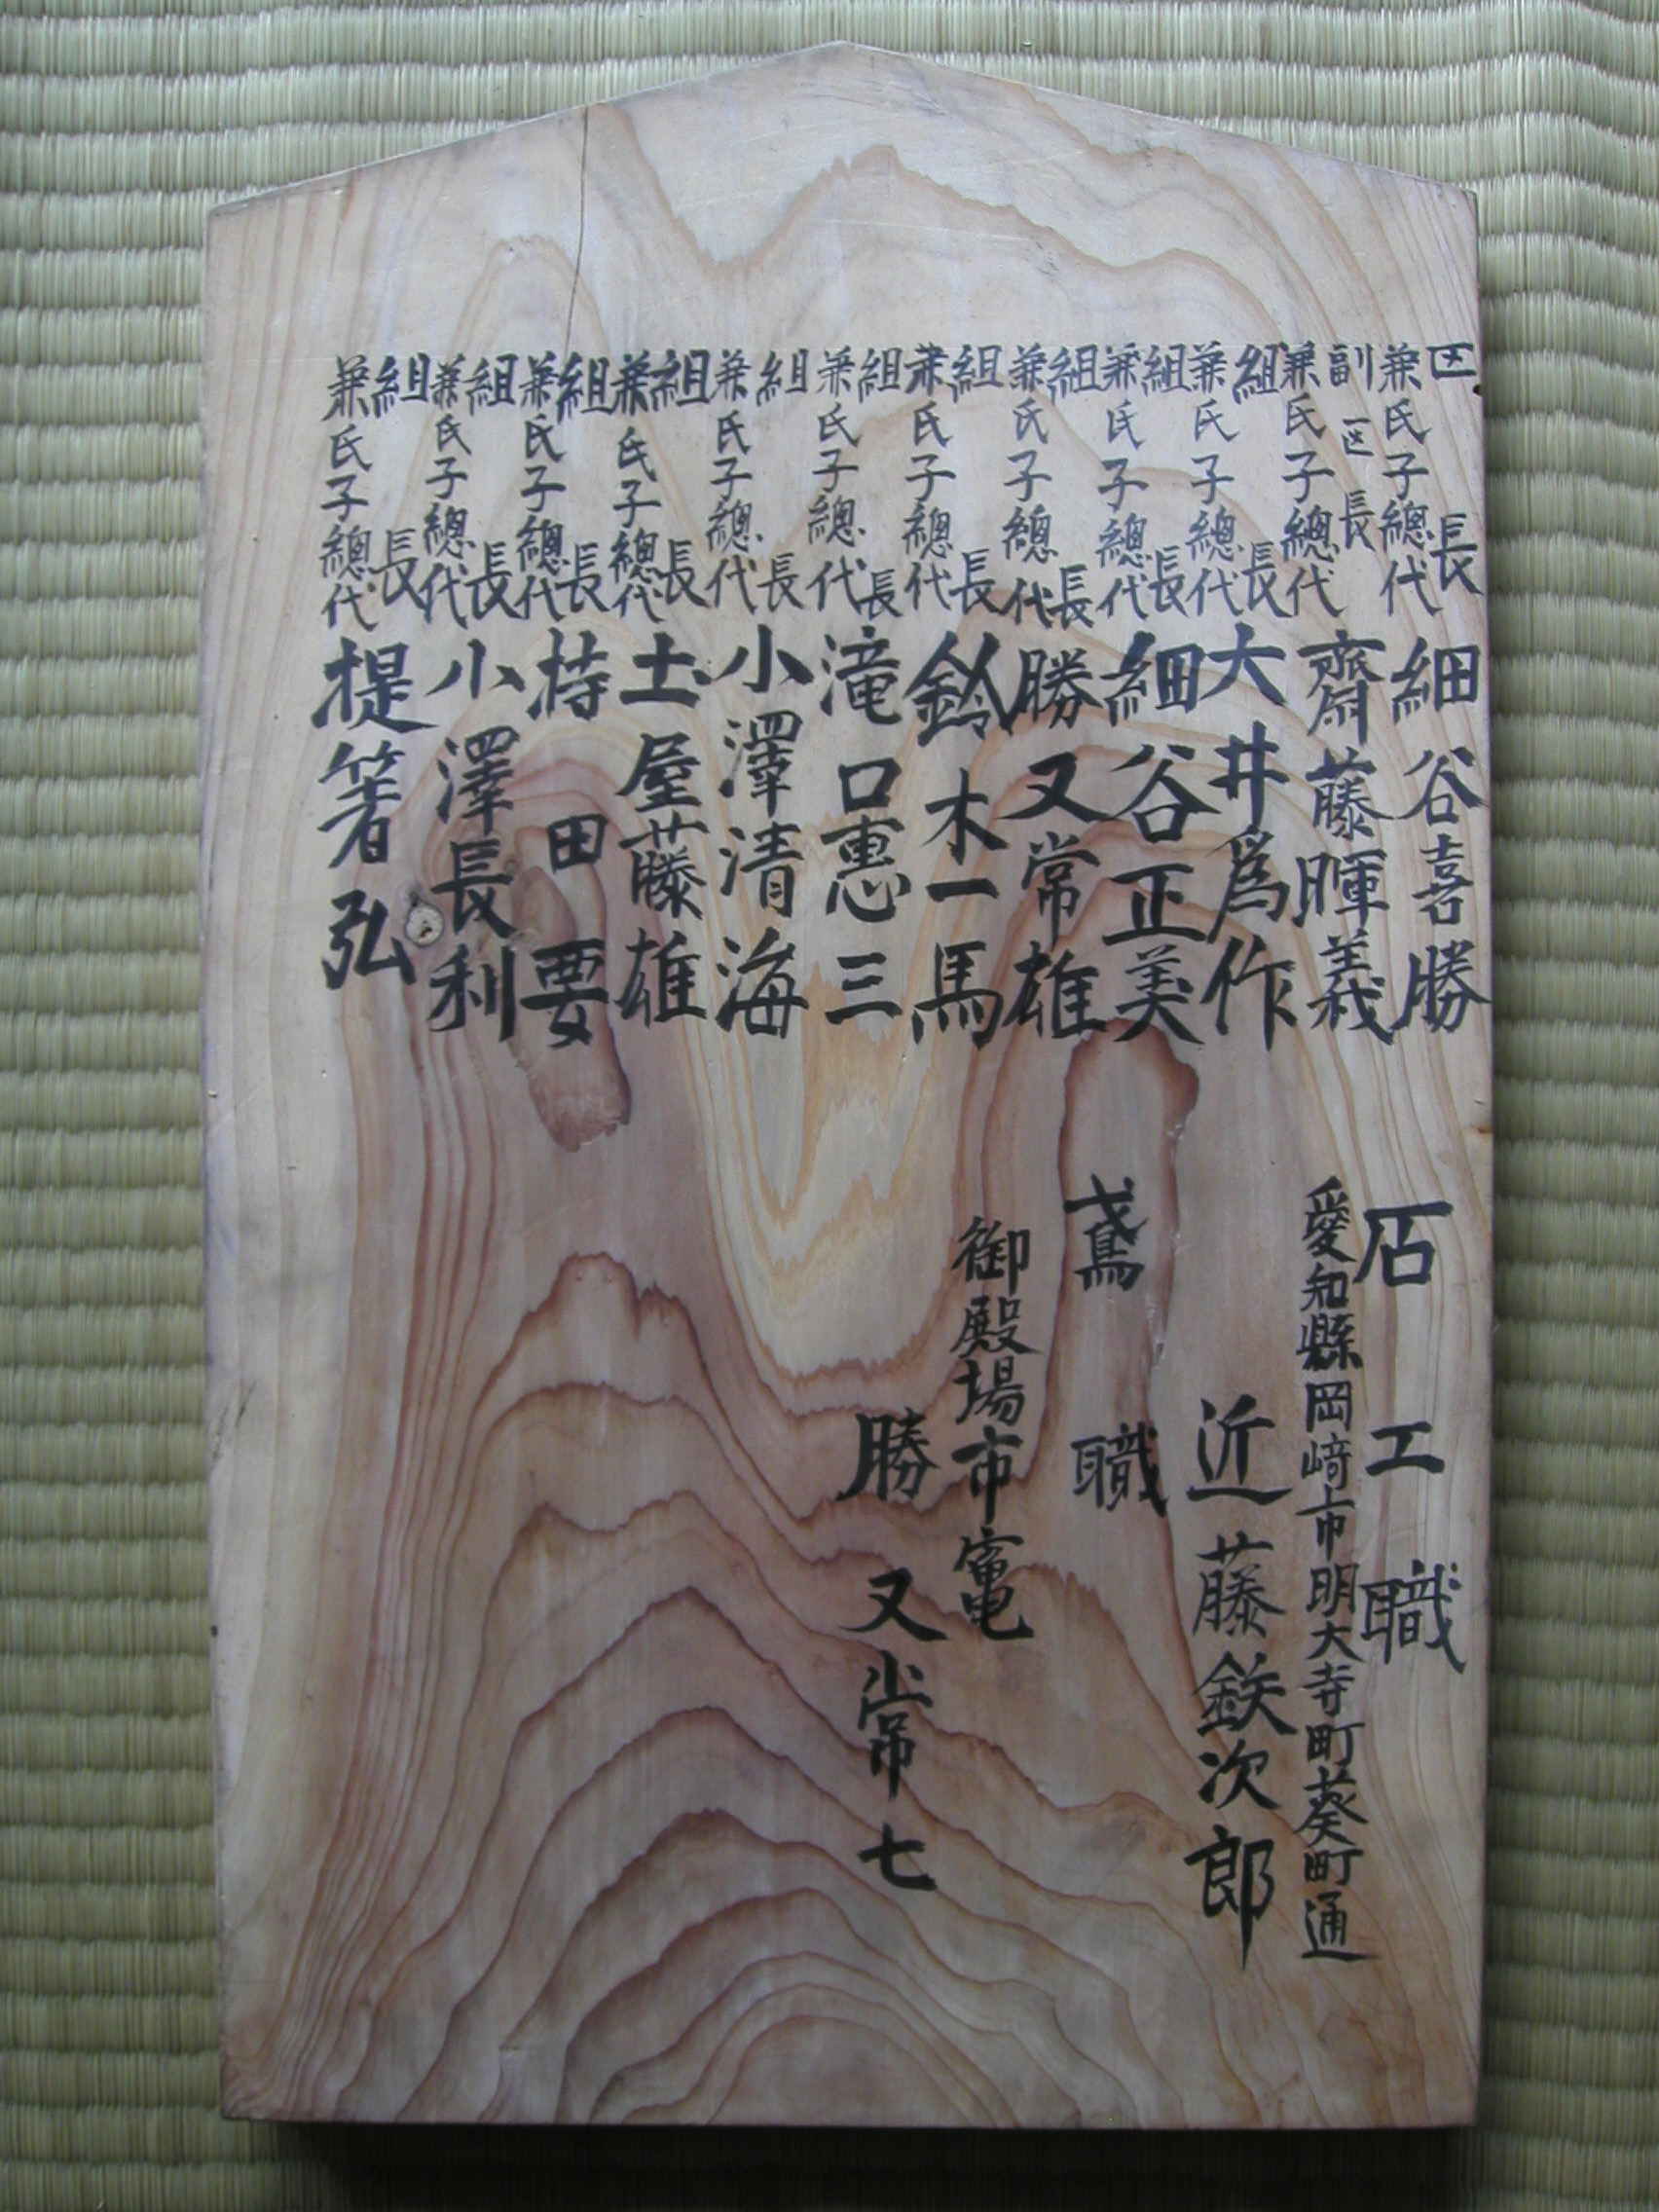 区長
兼氏子總代 細谷喜勝
副区長
兼氏子總代 齋藤暉義
組長
兼氏子總代 大井爲作
組長
兼氏子總代 細谷正美
組長
兼氏子總代 勝又常雄
組長
兼氏子總代 鈴木一馬
組長
兼氏子總代 滝口惠三
組長
兼氏子總代 小澤清海
組長
兼氏子總代 土屋藤雄
組長
兼氏子總代 持田要
組長
兼氏子總代 小澤長利
組長
兼氏子總代 提箸弘
石工職
愛知縣岡崎市明大寺町葵町通
近藤鉄次郎
鳶職
御殿場市竃
勝又常七